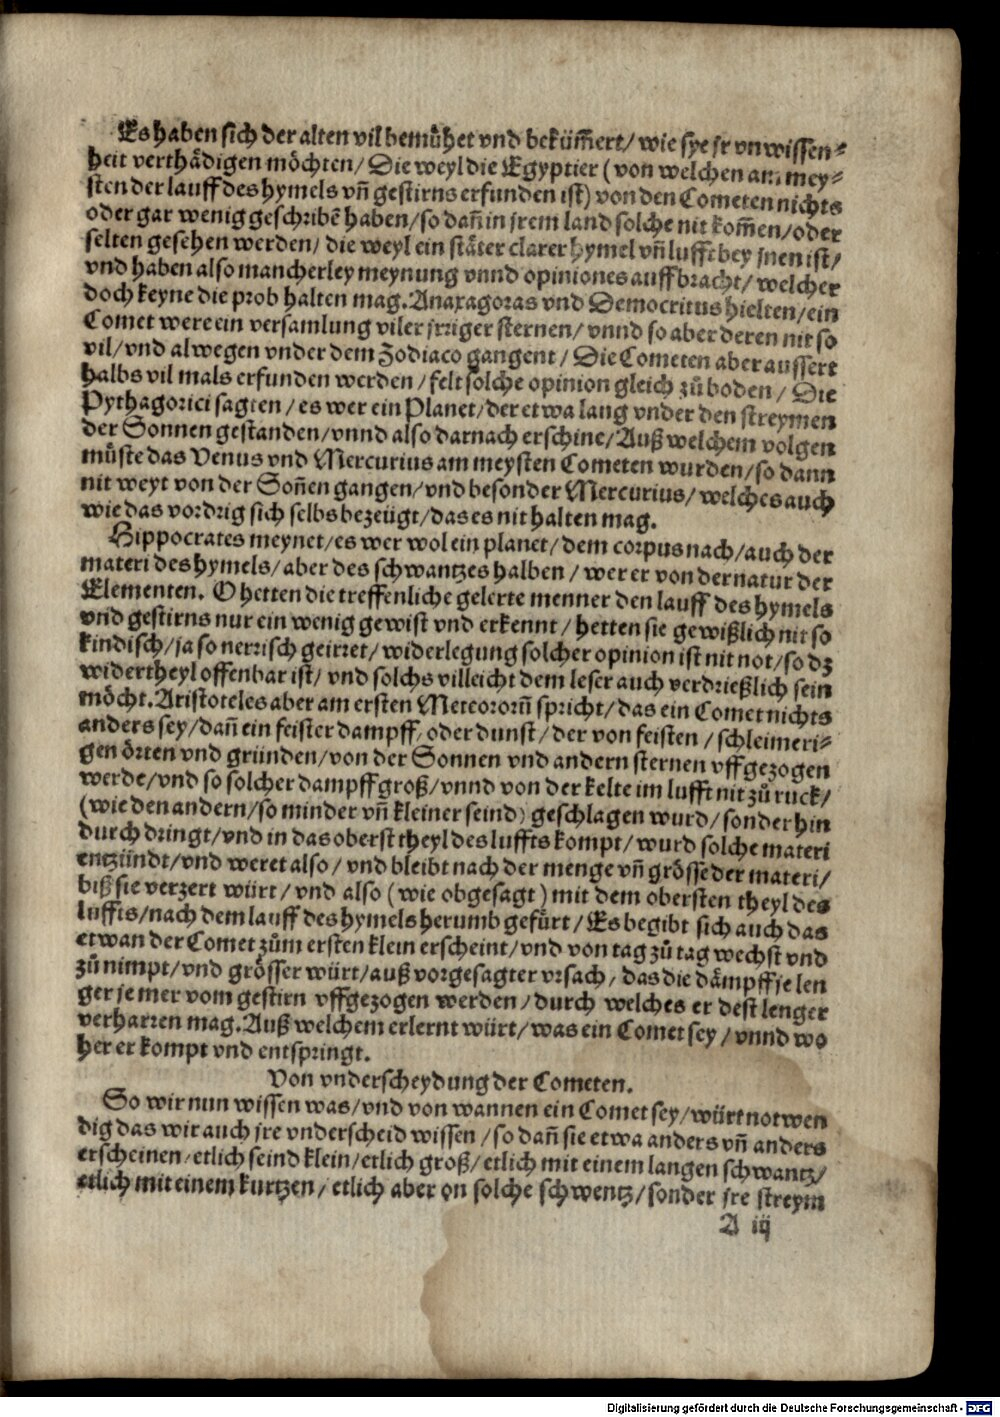 Es haben sich der alten vil bemuͤhet vnd bekuͤm̃ert/ wie sye jr vnwissen⸗
heit verthaͤdigen moͤchten/ Die weyl die Egyptier (von welchen am mey⸗
sten der lauff des hymels vñ gestirns erfunden ist) von den Cometen nichts
oder gar wenig geschribẽ haben/ so dañ in jrem land solche nit kom̃en/ oder
selten gesehen werden/ die weyl ein staͤter clarer hymel vñ lufft bey jnen ist/
vnd haben also mancherley meynung vnnd opiniones auffbracht/ welcher
doch keyne die prob halten mag. Anaxagoras vnd Democritus hielten/ ein
Comet were ein versamlung viler jrriger sternen/ vnnd so aber deren nit so
vil/ vnd alwegen vnder dem Zodiaco gangent/ Die Cometen aber aussert
halbs vil mals erfunden werden/ felt solche opinion gleich zuͦ boden/ Die
Pythagorici sagten/ es wer ein Planet/ der etwa lang vnder den streymen
der Sonnen gestanden/ vnnd also darnach erschine/ Auß welchem volgen
muͤste das Venus vnd Mercurius am meysten Cometen wurden/ so dann
nit weyt von der Soñen gangen/ vnd besonder Mercurius/ welches auch
wie das vordrig sich selbs bezeügt/ das es nit halten mag.
Hippocrates meynet/ es wer wol ein planet/ dem corpus nach/ auch der
materi des hymels/ aber des schwantzes halben/ wer er von der natur der
Elementen. O hetten die treffenliche gelerte menner den lauff des hymels
vnd gestirns nur ein wenig gewist vnd erkennt/ hetten sie gewißlich nit so
kindisch/ ja so nerrisch geirret/ widerlegung solcher opinion ist nit not/ so dz
widertheyl offenbar ist/ vnd solchs villeicht dem leser auch verdrießlich sein
moͤcht. Aristoteles aber am ersten Meteororũ spricht/ das ein Comet nichts
anders sey/ dañ ein feister dampff/ oder dunst/ der von feisten/ schleimeri⸗
gen oͤrten vnd gründen/ von der Sonnen vnd andern sternen vffgezogen
werde/ vnd so solcher dampff groß/ vnnd von der kelte im lufft nit zuͦ ruck/
(wie den andern/ so minder vñ kleiner seind) geschlagen wurd/ sonder hin
durch dringt/ vnd in das oberst theyl des luffts kompt/ wurd solche materi
entzündt/ vnd weret also/ vnd bleibt nach der menge vñ groͤsse der materi/
biß sie verzert würt/ vnd also (wie obgesagt) mit dem obersten theyl des
luffts/ nach dem lauff des hymels herumb gefürt/ Es begibt sich auch das
etwan der Comet zuͦm ersten klein erscheint/ vnd von tag zuͦ tag wechst vnd
zuͦ nimpt/ vnd groͤsser würt/ auß vorgesagter vrsach/ das die daͤmpff je len
ger je mer vom gestirn vffgezogen werden/ durch welches er dest lenger
verharren mag. Auß welchem erlernt würt/ was ein Comet sey/ vnnd wo
her er kompt vnd entspringt.
Von vnderscheydung der Cometen.
So wir nun wissen was/ vnd von wannen ein Comet sey/ würt notwen
dig das wir auch jre vnderscheid wissen/ so dañ sie etwa anders vñ anders
erscheinen/ etlich seind klein/ etlich groß/ etlich mit einem langen schwantz/
etlich mit einem kurtzen/ etlich aber on solche schwentz/ sonder jre streym
A iij
Digitalisierung gefördert durch die Deutsche Forschungsgemeinschaft - DFG